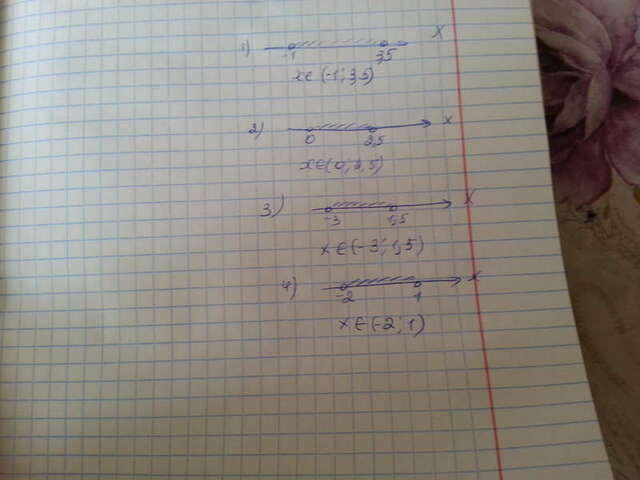 1) -1 3,5 x
x ∈ (-1; 3,5)
2) 0 x
x ∈ (0;
3) -3 1,5 x
x ∈ (-3; 1,5)
4) -2 1 x
x ∈ (-2; 1)